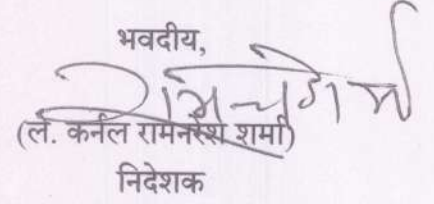 भवदीय,
(ले. कर्नल रामनरेश शर्मा)
निदेशक